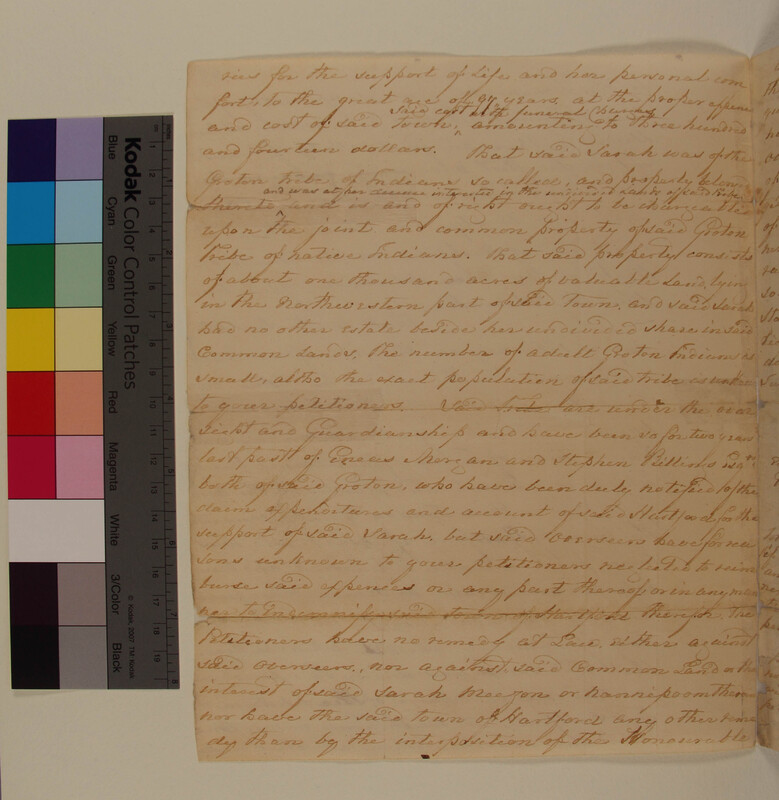 ries for the support of Life and her personal com
fort, to the great age of 97 years, at the proper expence
Said cost with funeral charges
and cost of said town, amounting to three hundred
and fourteen dollars. That said Sarah was of the
Groton tribe of Indians so called, and property belong
and was at her decease interested in the undivided Lands of said tribe
thereto, and is and of right ought to be chargeable
upon the joint and common property of said Groton
tribe of native Indians. That said property consists
of about one thousand acres of valuable Land, lying
in the Northwestern part of said town, and said Sarah
had no other estate beside her undivided share in said
Common Lands, the number of adult Groton Indians is
small, altho the exact population of said tribe is unknown
to your petitioners. Said tribe are under the over
sight and Guardianship and have been so for two years
last past of Eneas Morgan and Stephen Billings
both of said Groton, who have been duly notified of the
claim expenditures and account of said Hartford for the
support of said Sarah, but said overseers have for rea
sons unknown to your petitioners neglected to reim
burse said expences or any part thereof or in any man
ner to Indemnify said town of Hartford therefor. The
Petitioners have no remedy at Law, either against
said overseers, nor against said Common Land or the
interest of said Sarah Meazon or nannepoom therein
nor have the said town of Hartford any other reme
dy than by the interposition of the Honourable
Kodak Color Control Patches
Blue
Cyan
Green
Yellow
Red
Magenta
White
3/Color
Black
© Kodak, 2007 TM: Kodak